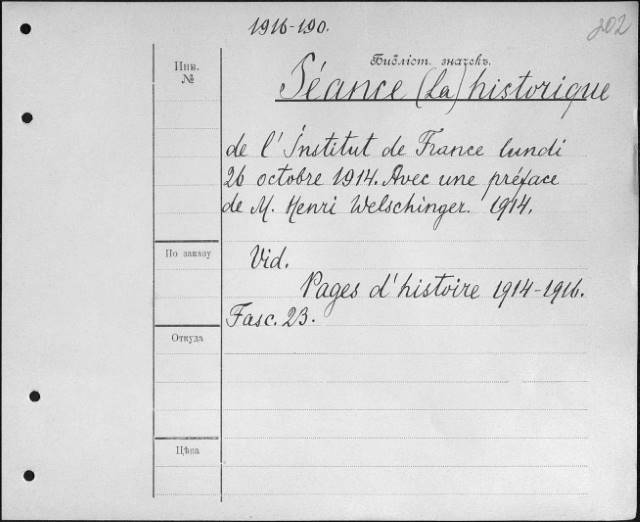 1916-190.
202
Инв.
№
Библіот. значекъ.
Séance (La) historique
de l' Institut de France lundi
26 octobre 1914. Avec une préface
de M. Henri Welschinger. 1914.
По заказу
Vid.
Pages d'histoire 1914-1916.
Fasc. 23.
Откуда
Цѣна